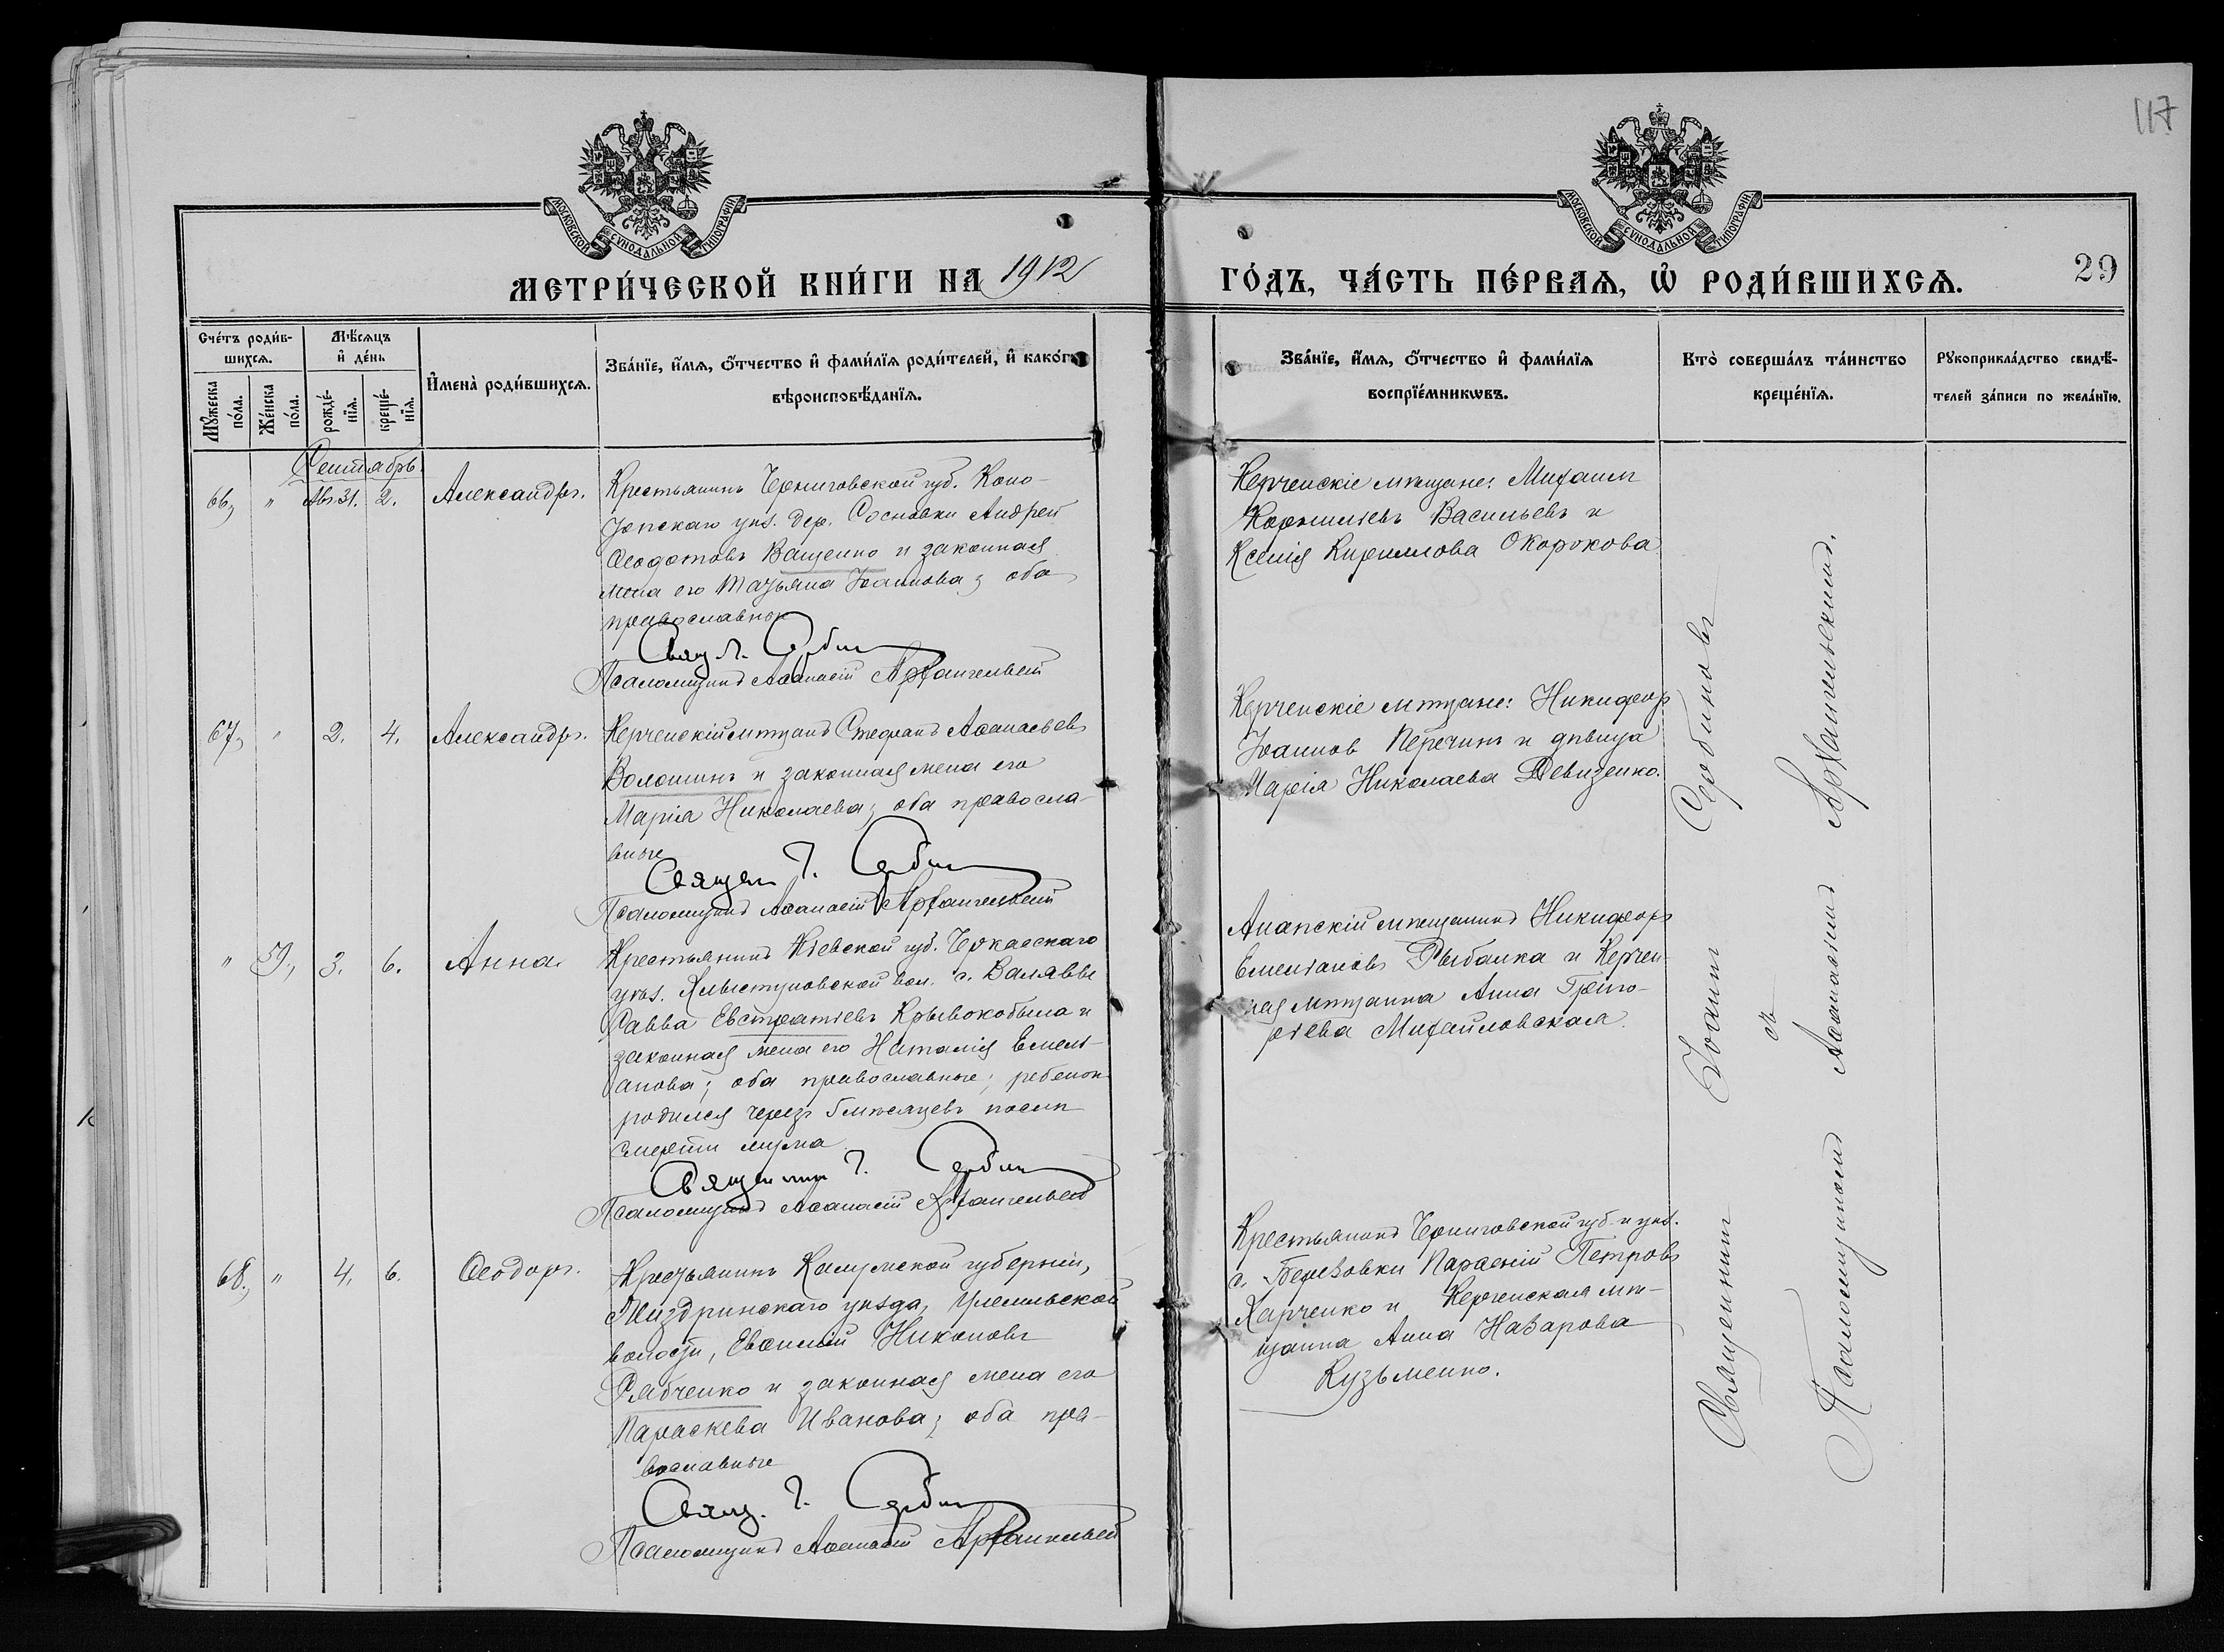 117
МОСКОВСКОЙ СУНОДАЛЬНОЙ ТИПОГРАФІИ
МОСКОВСКОЙ СУНОДАЛЬНОЙ ТИПОГРАФІИ
МЕТРИ́ЧЕСКОЙ КНИ́ГИ НА 1912
ГО́ДЪ, ЧА́СТЬ ПЕ́РВАѦ, Ѡ҆ РОДИ́ВШИХСѦ.
29
Сче́тъ роди́в-
шихсѧ.
Мꙋ́жеска по́ла.
Же́нска по́ла.
Мѣ́сѧцъ
и҆ де́нь
рожде́-
нїѧ.
креще́-
нїѧ.
И҆мена̀ роди́вшихсѧ.
Зва́нїе, и҆́мѧ, ѻ҆́тчество и҆ фами́лїѧ роди́телей, и҆ како́гѡ
вѣроисповѣ́данїѧ.
Зва́нїе, и҆́мѧ, ѻ҆́тчество и҆ фами́лїѧ
воспрїе́мникѡвъ.
Кто̀ соверша́лъ та́инство
креще́нїѧ.
Рꙋкоприкла́дство свидѣ́-
телей за́писи по жела́нїю.
Сентябрь.
66, " Авг. 31. 2. Александръ.
Крестьянинъ Черниговской губ. Коно-
топскаго уѣз. дер. Сосновки Андрей
Ѳеодотовъ Ващенко и законная
жена его Татьяна Іоаннова; оба
православные
Свящ. І. Сербин
Псаломщикъ Аѳанасій Архангельскій
Керченскіе мѣщане: Михаилъ
Корниліевъ Васильевъ и
Ксенія Кириллова Окорокова
67, " 2. 4. Александръ.
Керченскій мѣщанинъ Стефанъ Аѳанасьевъ
Волошинъ и законная жена его
Марія Николаева; оба правосла-
вные
Священ І. Сербин
Псаломщикъ Аѳанасій Архангельскій
Керченскіе мѣщане: Никифоръ
Іоаннов Перечинъ и дѣвица
Марія Николаева Девизенко.
" 3. 6. Анна.
Крестьянинъ Кіевской губ. Черкасскаго
уѣз. Хлыстуновской вол. с. Валявы
Савва Евстратіевъ Крывокобыла и
законная жена его Наталія Емель-
янова; оба православные; ребенок
родился черезъ мѣсяцевъ послѣ
смерти мужа
Священник І. Сербин
Псаломщикъ Аѳанасій Архангельскій
Анапскій мѣщанинъ Никифоръ
Емеліановъ Рыбалка и Керчен-
ская мѣщанка Анна Григо-
ріева Михайловская.
68, " 4. 6. Ѳеодоръ.
Крестьянинъ Калужской губерніи,
Жиздринскаго уѣзда, Улемльской
волости, Евѳимій Никоновъ
Рябченко и законная жена его
Параскева Иванова; оба пра-
вославные
Свящ. І. Сербин
Псаломщикъ Аѳанасій Архангельскій
Крестьянинъ Черниговской губ. и уѣз.
с. Березовки Парѳеній Петровъ
Харченко и Керченская мѣ-
щанка Анна Назарова
Кузьменко.
Священникъ Іоаннъ Сербиновъ
съ
Псаломщикомъ Аѳанасіемъ Архангельскимъ.